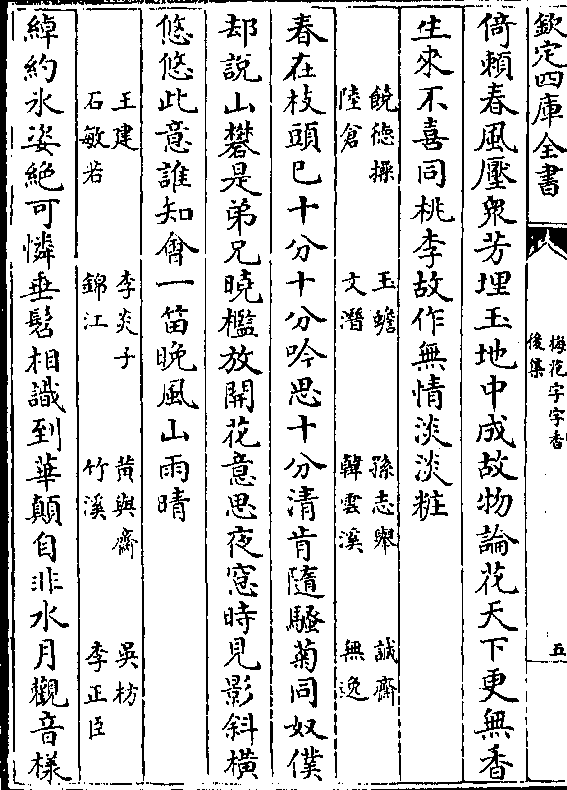 欽定四庫全書
梅花字字香
後集
五
倚賴春風壓衆芳埋玉地中成故物論花天下更無香
生來不喜同桃李故作無情淡淡粧
饒德操
陸倉
玉蟾
文潛
孫志舉
韓雲溪
誠齋
無逸
春在枝頭已十分十分吟思十分清肯隨騷菊同奴僕
却說山礬是弟兄曉檻放開花意思夜窓時見影斜橫
悠悠此意誰知㑹一笛晩風山雨晴
王建
石敏若
李炎子
錦江
黃與齋
竹溪
吳枋
李正臣
綽約氷姿絶可憐垂髫相識到華顛自非水月觀音樣